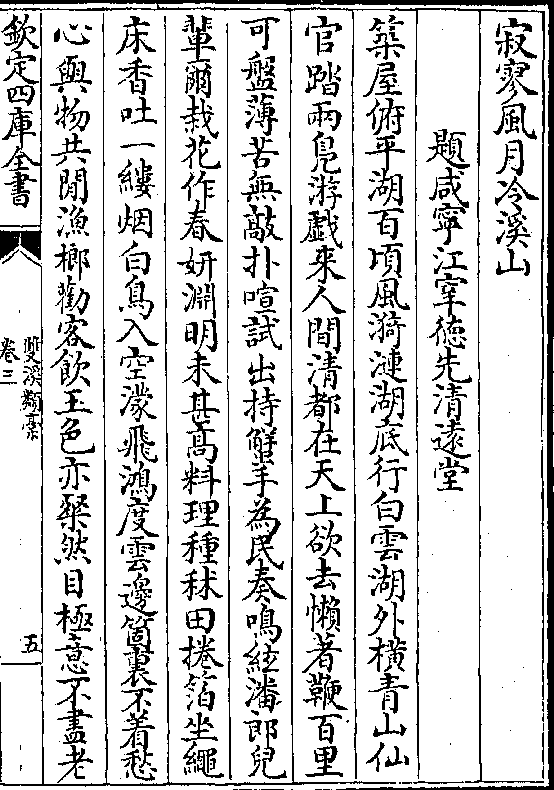 寂寥風月冷溪山
題咸寧江宰德先清遠堂
築屋俯平湖百頃風漪漣湖底行白雲湖外橫青山仙
官踏兩鳧游戲來人間清都在天上欲去懶著鞭百里
可盤薄苦無敲扑喧試出持蟹手為民奏鳴絃潘郎兒
輩爾栽花作春妍淵明未甚高料理種秫田捲箔坐繩
床香吐一縷烟白鳥入空濛飛鴻度雲邊箇裏不着愁
心與物共閒漁榔勸客飲玉色亦粲然目極意不盡老
欽定四庫全書
雙溪類藁
卷三
五